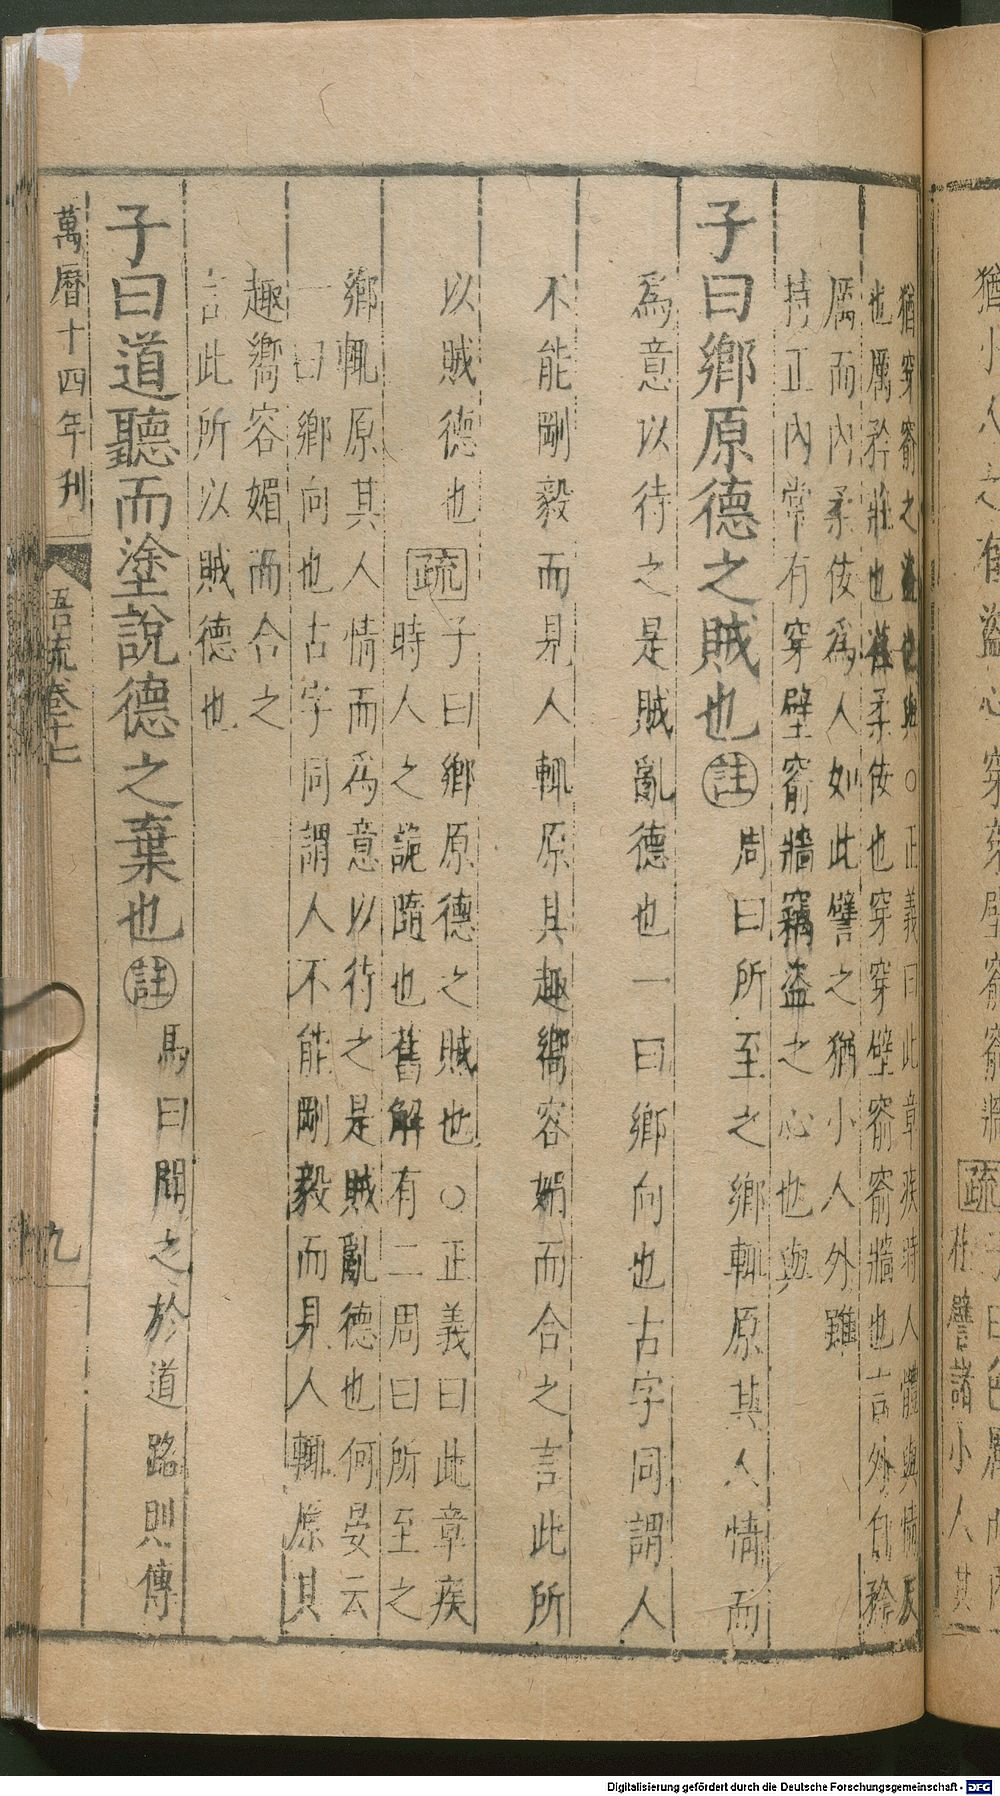 猶穿窬之盜也與○正義曰此章疾時人體與情反
也厲矜莊也荏柔佞也穿穿壁窬窬牆也言外自矜
厲而內柔佞為人如此譬之猶小人外雖
持正內常有穿壁窬牆竊盜之心也與
子曰鄉原德之賊也註周曰所至之鄉輒原其人情而
為意以待之是賊亂德也一曰鄉向也古字同謂人
不能剛毅而見人輒原其趣嚮容媚而合之言此所
以賊德也疏子曰鄉原德之賊也○正義曰此章疾
時人之詭隨也舊解有二周曰所至之
鄉輒原其人情而為意以待之是賊亂德也何晏云
一曰鄉向也古字同謂人不能剛毅而見人輒原其
趣嚮容媚而合之
言此所以賊德也
子曰道聽而塗說德之棄也註馬曰聞之於道路則傳
萬曆十四年刊
語疏卷十七
九
Digitalisierung gefördert durch die Deutsche Forschungsgemeinschaft - DFG